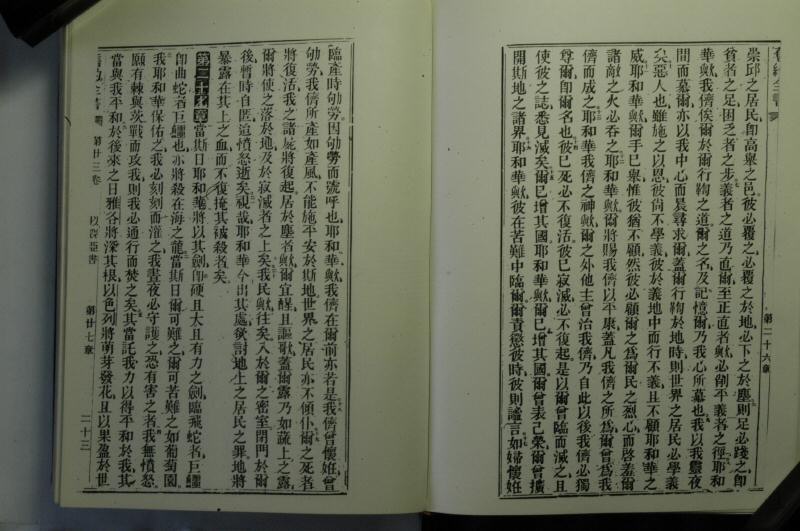 舊約全書
第二十六章
崇邱之居民即高舉之邑彼必覆之必覆之於地必下之於塵則足必踐之即
貧者之足困乏者之步義者之道乃直爾至正直者歟必削平義者之徑耶和
華歟我儕俟候於爾行鞫之道爾之名及記憶爾乃我心所慕也我以我靈夜
間而慕爾亦以我中心而晨尋求爾蓋爾行鞫於地時則世界之居民必學義
矣惡人也雖施之以恩彼尚不學義彼於義地中而行不義且不顧耶和華之
威耶和華歟爾手已舉惟彼猶不顧然彼必顧爾之為爾民之烈心而啓羞爾
諸敵之火必吞之耶和華歟爾將賜我儕以平康蓋凡我儕之所為爾曾為我
儕而成之耶和華我儕之神歟爾之外他主曾治我儕乃自此以後我儕必獨
尊爾即爾名也彼已死必不復活彼已寂滅必不復起是以爾曾臨而滅之且
使彼之誌悉見滅矣爾已增其國耶和華歟爾已增其國爾曾表己榮爾曾擴
開斯地之諸界耶和華歟彼在苦難中臨爾爾責懲彼時彼則謐言如婦懷姙
臨產時劬勞因劬勞而號呼也耶和華歟我儕在爾前亦若是我儕曾懷姙曾
劬勞我儕所產如產風不能施平安於斯地世界之居民亦不傾仆爾之死者
將復活我之諸屍將復起居於塵者歟爾宜醒且謳歌蓋爾露乃如蔬上之露
爾將使之落於地及於寂滅者之上矣我民歟往矣入於爾之密室閉門於爾
後暫時自匿這憤怒逝矣視哉耶和華今出其處欲討地上之居民之罪地將
暴露在其上之血而不復掩其被殺者矣
第二十七章當斯日耶和華將以其劍即硬且大且有力之劍臨飛蛇者巨鱷
即曲蛇者巨鱷也亦將殺在海之龍當斯日爾可難之爾可苦難之如葡萄園
我耶和華保佑之我必刻刻而灌之我晝夜必守護之恐有害之者我無憤怒
願有棘與茨戰而攻我則我必通行而焚之矣其當託我力以得平和於我其
當與我平和於後來之日雅各將深其根以色列將萌芽發花且以果盈於世
舊約全書
第廿三卷
以賽亞書
第廿七章
二十三